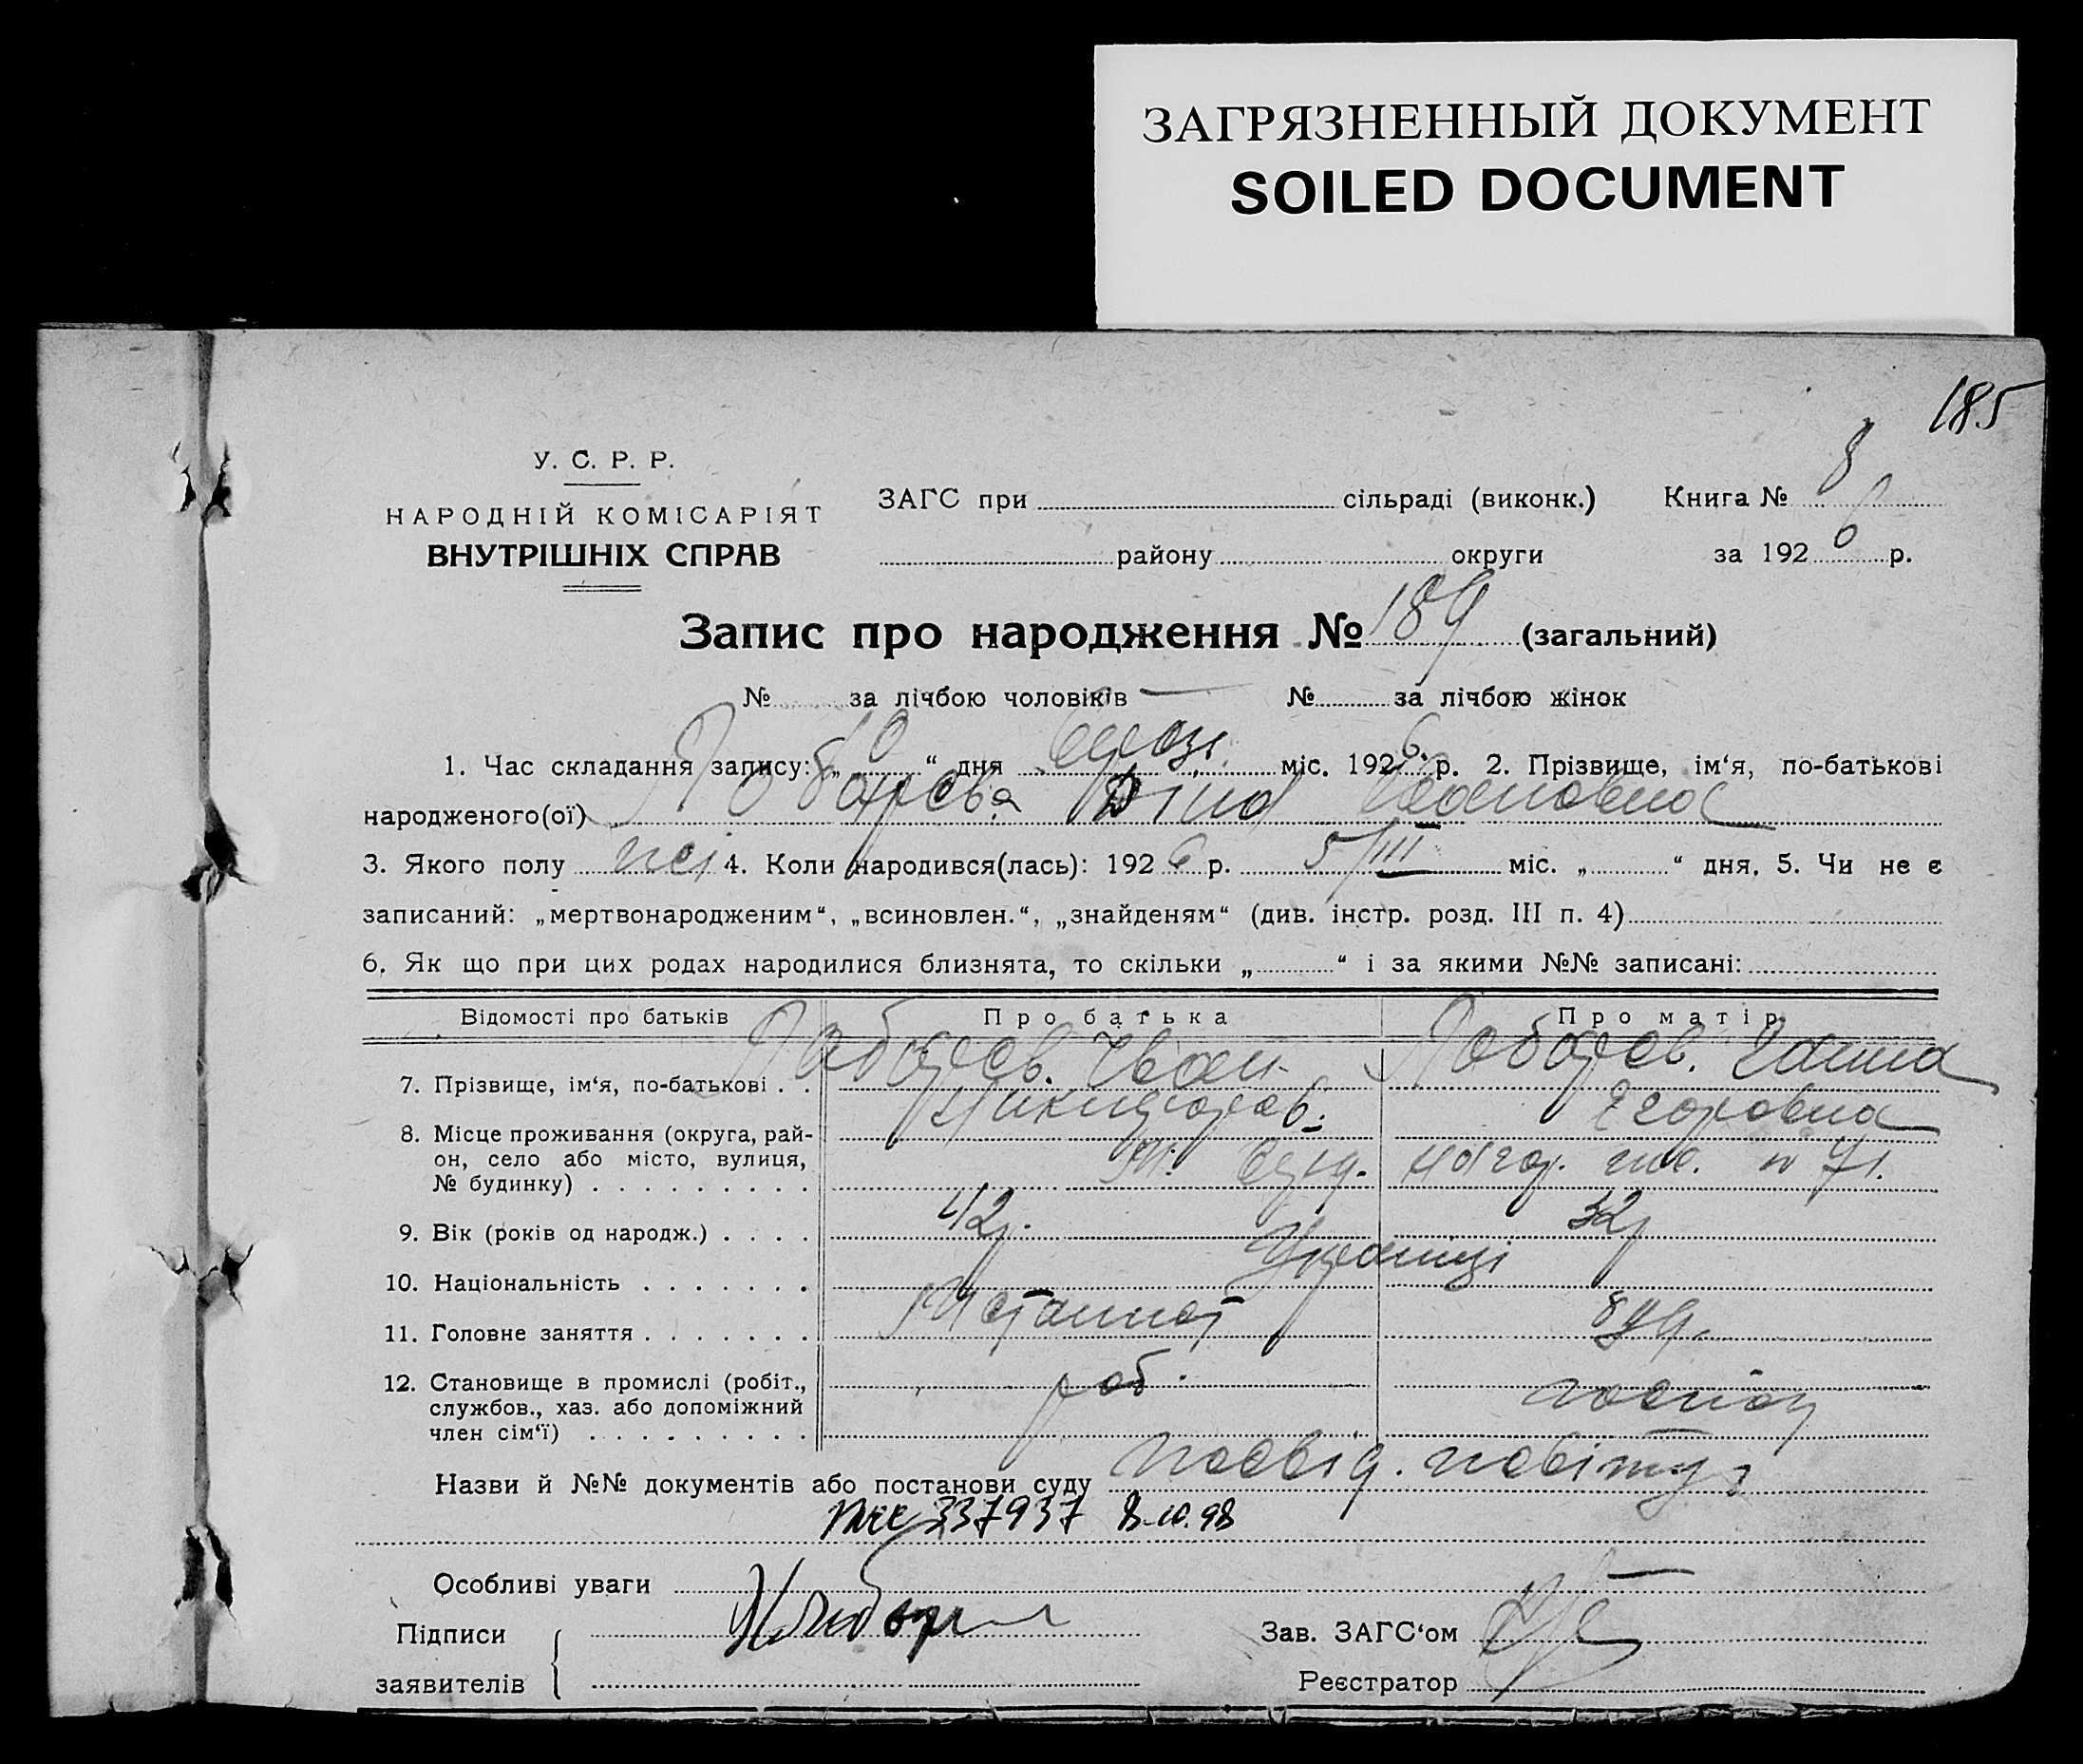 ЗАГРЯЗНЕННЫЙ ДОКУМЕНТ
SOILED DOCUMENT
185
У. С. Р. Р.
НАРОДНІЙ КОМІСАРІЯТ
ВНУТРІШНІХ СПРАВ
ЗАГС при сільраді (виконк.) Книга № 8
району округи за 1926 р.
Запис про народження № 189 (загальний)
№ за лічбою чоловіків — № за лічбою жінок
1. Час складання запису: „10“ дня міс. 1926 р. 2. Прізвище, ім‘я, по-батькові
народженого(ої) Ивановна
3. Якого полу 4. Коли народився(лась): 1926 р. 5/III міс. „ “ дня. 5. Чи не є
записаний: „мертвонародженим“, „всиновлен.“, „знайденям“ (див. інстр. розд. III п. 4)
6. Як що при цих родах народилися близнята, то скільки „ “ і за якими №№ записані:
Відомості про батьків Про батька Про матір
7. Прізвище, ім‘я, по-батькові . . Иван Ганна
Никифоров. Егоровна
8. Місце проживання (округа, рай-
он, село або місто, вулиця,
№ будинку) . . . . . . . . . № 71.
9. Вік (років од народж.) . . . . 42р. 32р
10. Національність . . . . . . . Українці
11. Головне заняття . . . . . . .
12. Становище в промислі (робіт., роб.
службов., хаз. або допоміжний
член сім‘ї) . . . . . . . . .
Назви й №№ документів або постанови суду посвід.
337937 8.10.98
Особливі уваги
Підписи
заявителів
Зав. ЗАГС‘ом
Реєстратор